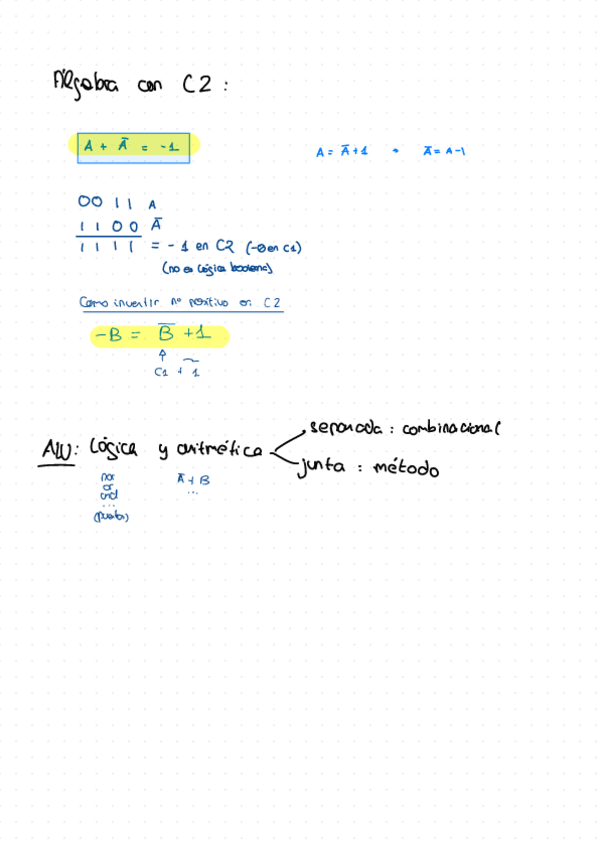 Álgebra con C2:
A + Ā = -1
A = Ā+1 → Ā = A-1
0011 A
1100 Ā
1111 = -1 en C2 (-0 en C1)
(no es lógica booleana)
Como invertir nº positivo en C2
-B = B̅ + 1
↑
C1 + 1
ALU: Lógica y aritmética
separada: combinacional
junta: método
nor
or
and
...
Ā + B
...